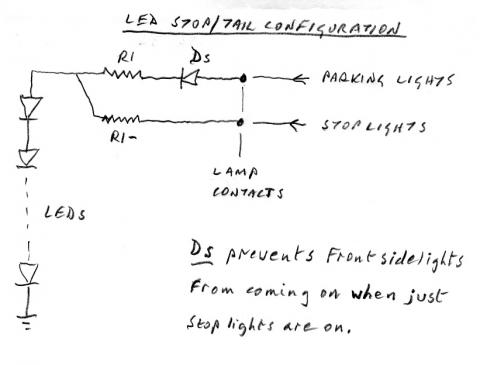 LED STOP/TAIL CONFIGURATION
R1
Ds
PARKING LIGHTS
R1-
STOPLIGHTS
LAMP
CONTACTS
LEDs
Ds prevents Front sidelights
From coming on when just
Stop lights are on.